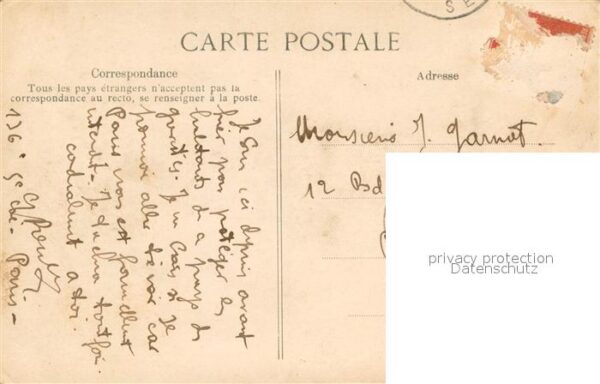 SE
CARTE POSTALE
Correspondance
Tous les pays étrangers n'acceptent pas la
correspondance au recto, se renseigner à la poste.
Adresse
Je suis ici depuis avant
hier pour protéger les
habitants de ce pays de
Je ne sais si je
pourrai aller te voir car
Paris nous est formellement
interdit. Je tâcherai toutefois
cordialement à toi.
136e 5e Cie Paris
Monsieur J. Garnot.
12 Bd
privacy protection
Datenschutz